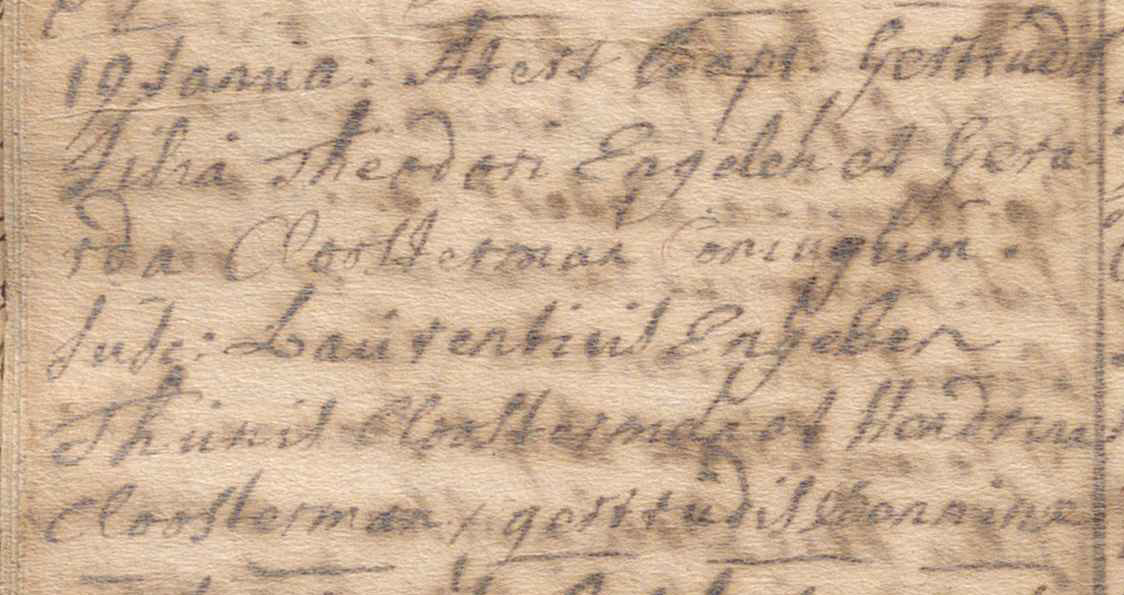 19 Janua: Atert bapt. Gertrudis
Filia Theodori Engelen et Gera-
rda Cloosterman Coniugum.
Susc: Laurentius Engelen
Thunis Cloosterman et Hendrina
Cloosterman / gertrudis Hennine